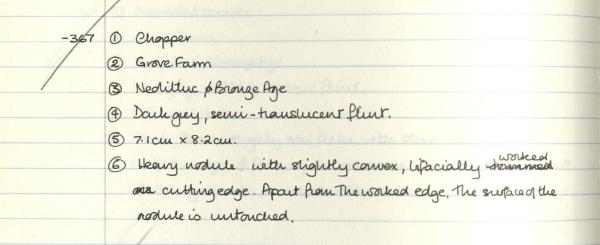 -367 ① Chopper
② Grove Farm
③ Neolithic & Bronze Age
④ Dark grey, semi-translucent flint.
⑤ 7.1cm x 8.2cm.
⑥ Heavy nodule with slightly convex, bifacially worked
cutting edge. Apart from the worked edge, the surface of the
nodule is untouched.